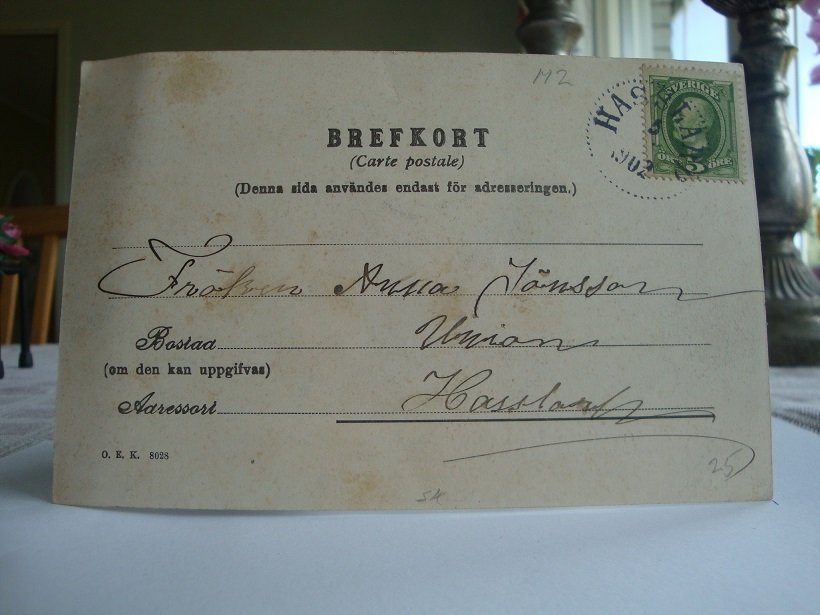 112
SVERIGE
5 ÖRE
1902
BREFKORT
(Carte postale)
(Denna sida användes endast för adresseringen.)
Fröken Anna Jönsson
Bostad Union
(om den kan uppgifvas)
Adressort
O. E. K. 8028
25